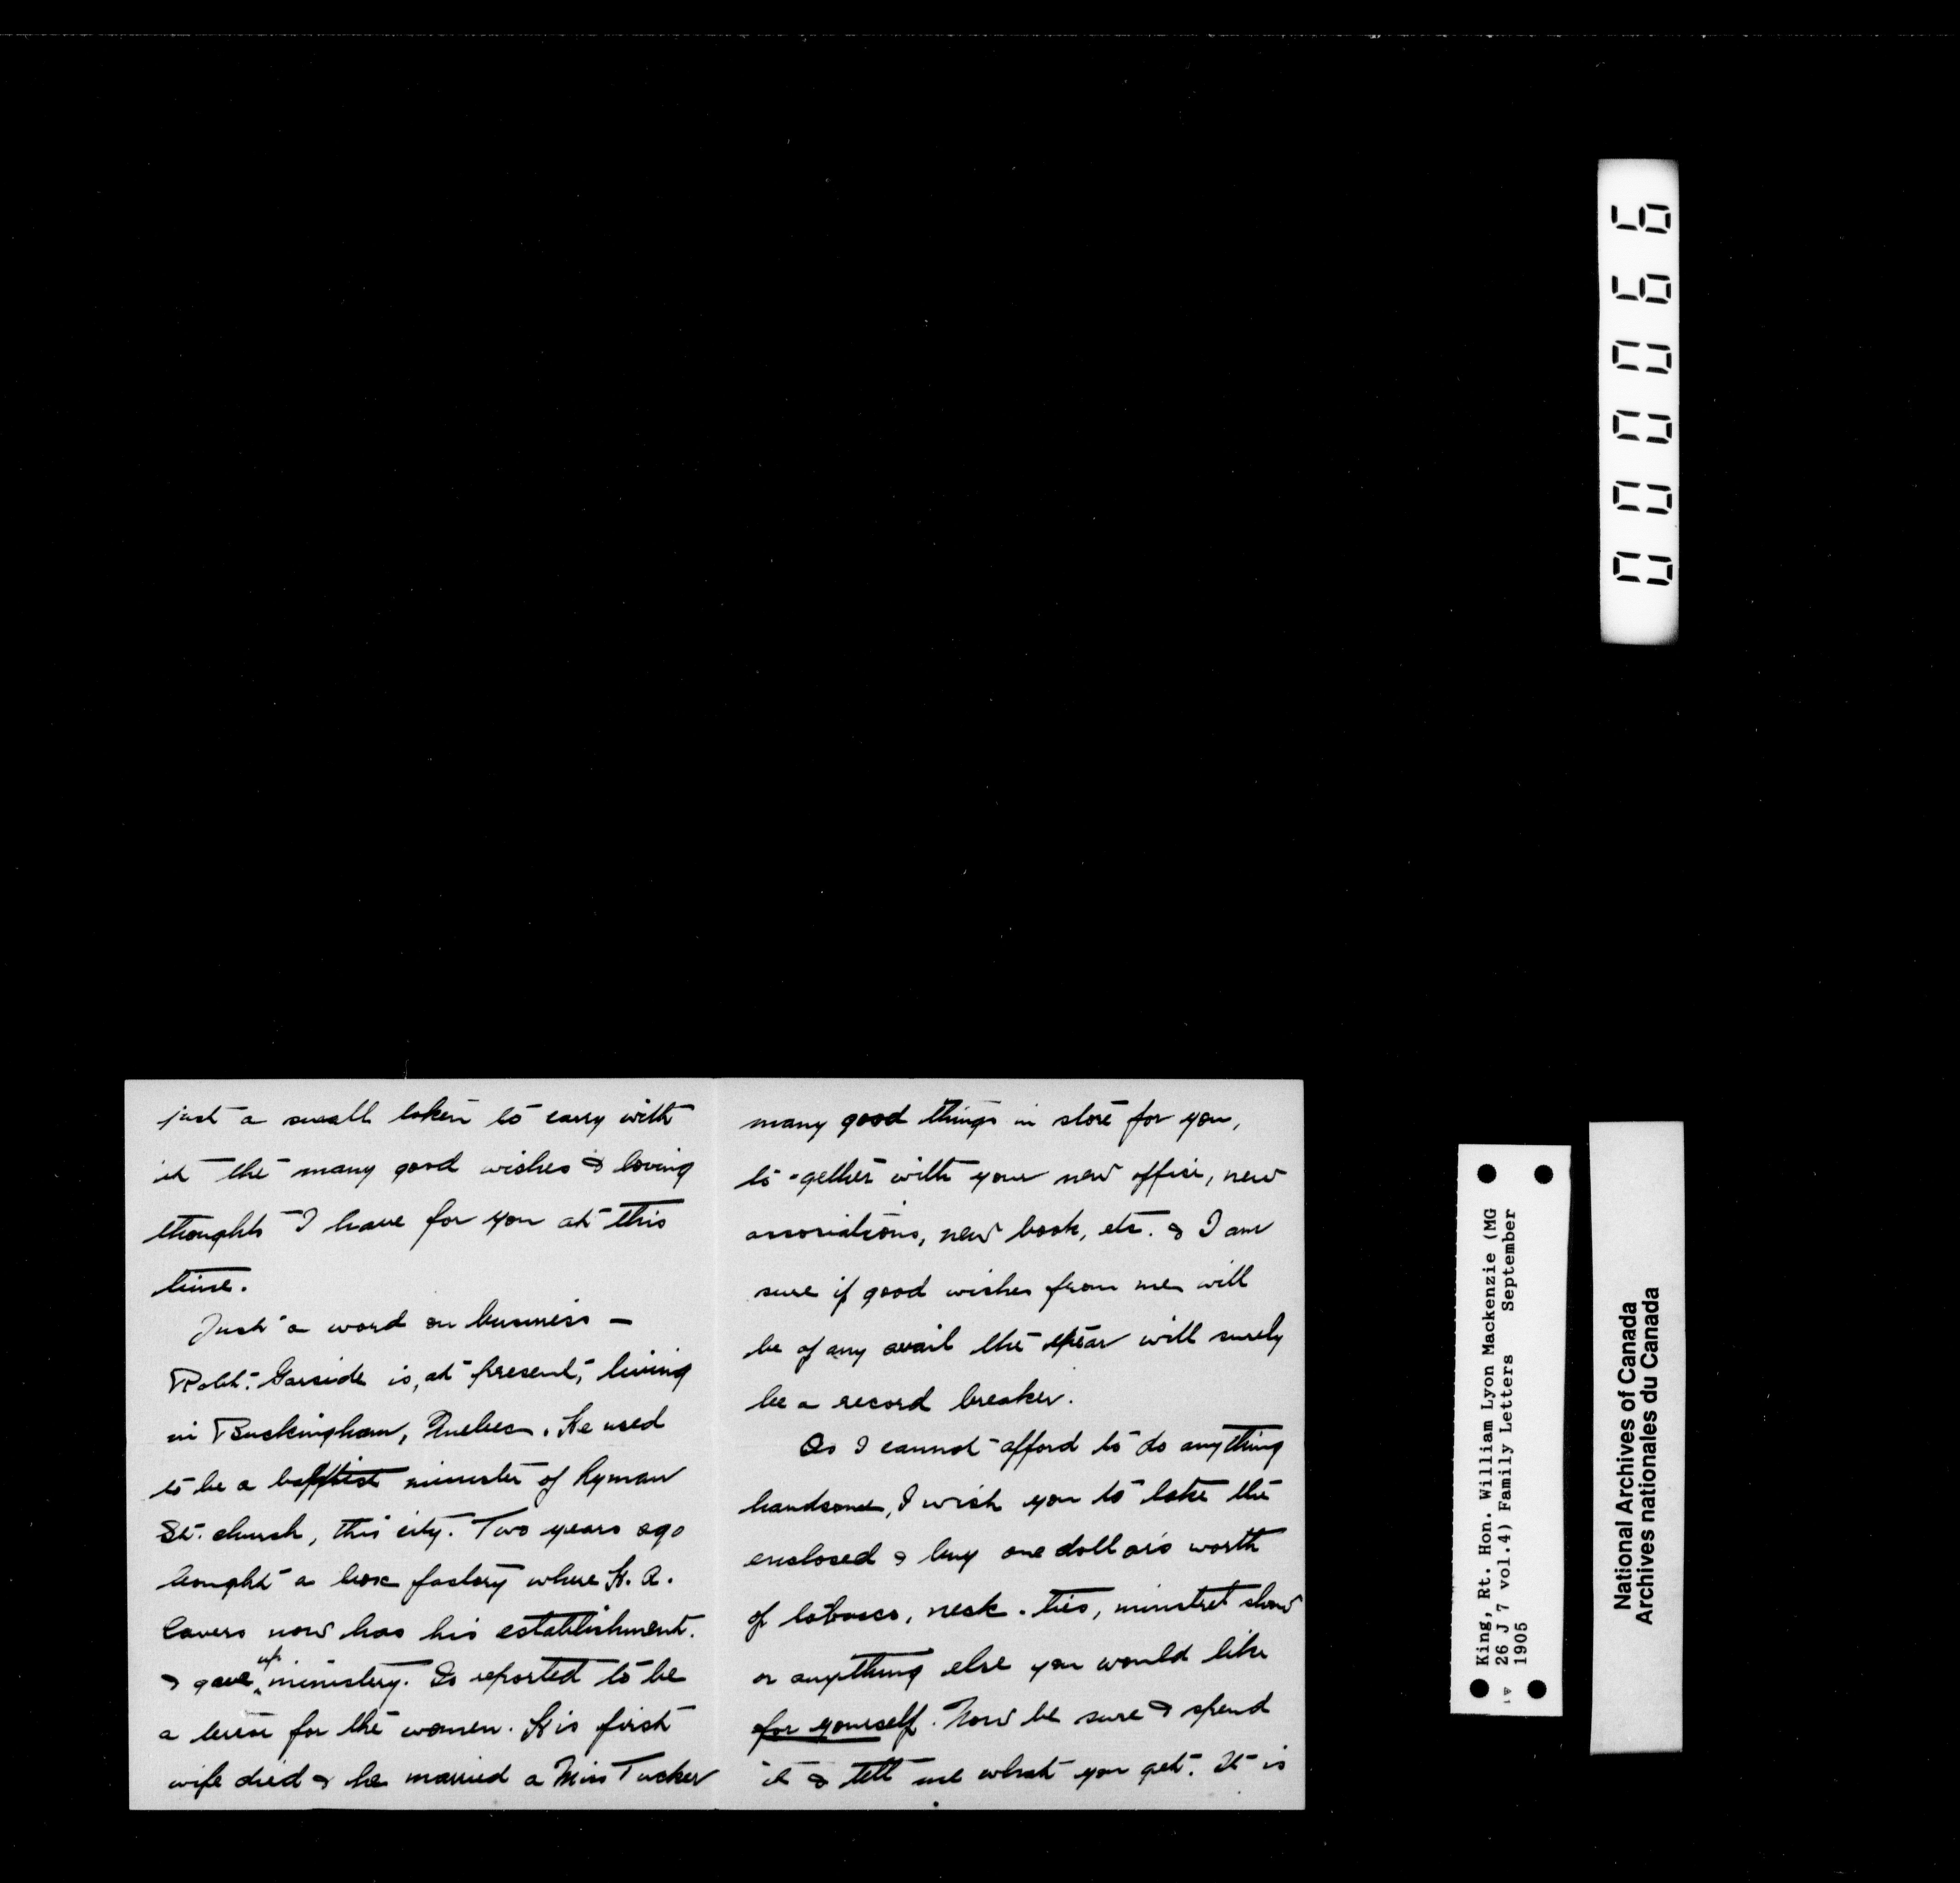 many good things in store for you,
to-gether with your new office, new
associations, new book, etc. & I am
sure if good wishes from me will
be of any avail the year will surely
be a record breaker.
As I cannot afford to do anything
handsome, I wish you to take the
enclosed & buy one dollars worth
of tobacco, neck-ties, minstrel show
or anything else you would like
for yourself. Now be sure & spend
it & tell me what you get. It is
just a small token to carry with
it the many good wishes & loving
thoughts I have for you at this
time.
Just a word on business —
Robt. Garside is, at present, living
in Buckingham, Quebec. He used
to be a baptist minister of Lyman
St. church, this city. Two years ago
bought a box factory where H. A.
now has his establishment.
& gave up ministery. Is reported to be
a for the women. His first
wife died & he married a Miss Tucker
000066
King, Rt. Hon. William Lyon Mackenzie (MG
26 J 7 vol.4) Family Letters September
1905
National Archives of Canada
Archives nationales du Canada